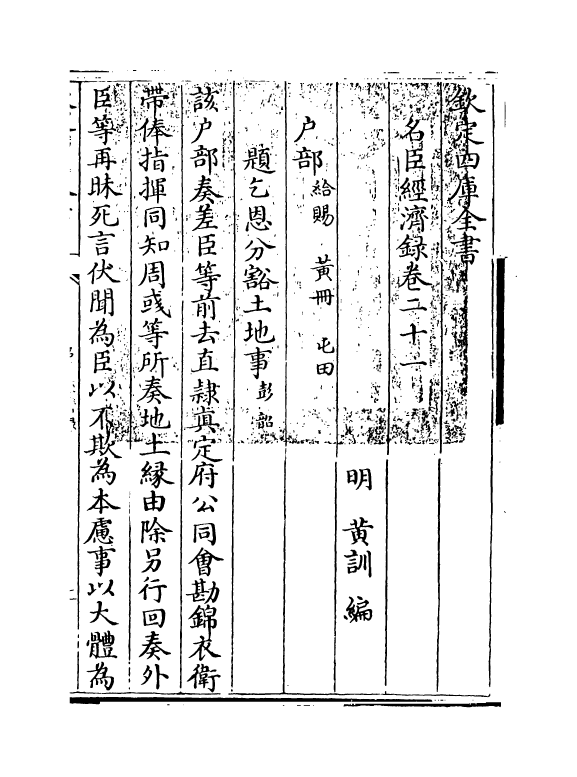 欽定四庫全書
名臣經濟録卷二十一
明 黄訓 編
户部給賜 黄冊 屯田
題乞恩分豁土地事彭韶
該户部奏差臣等前去直隷真定府公同會勘錦衣衛
帶俸指揮同知周彧等所奏地土縁由除另行回奏外
臣等再昧死言伏聞為臣以不欺為本慮事以大體為